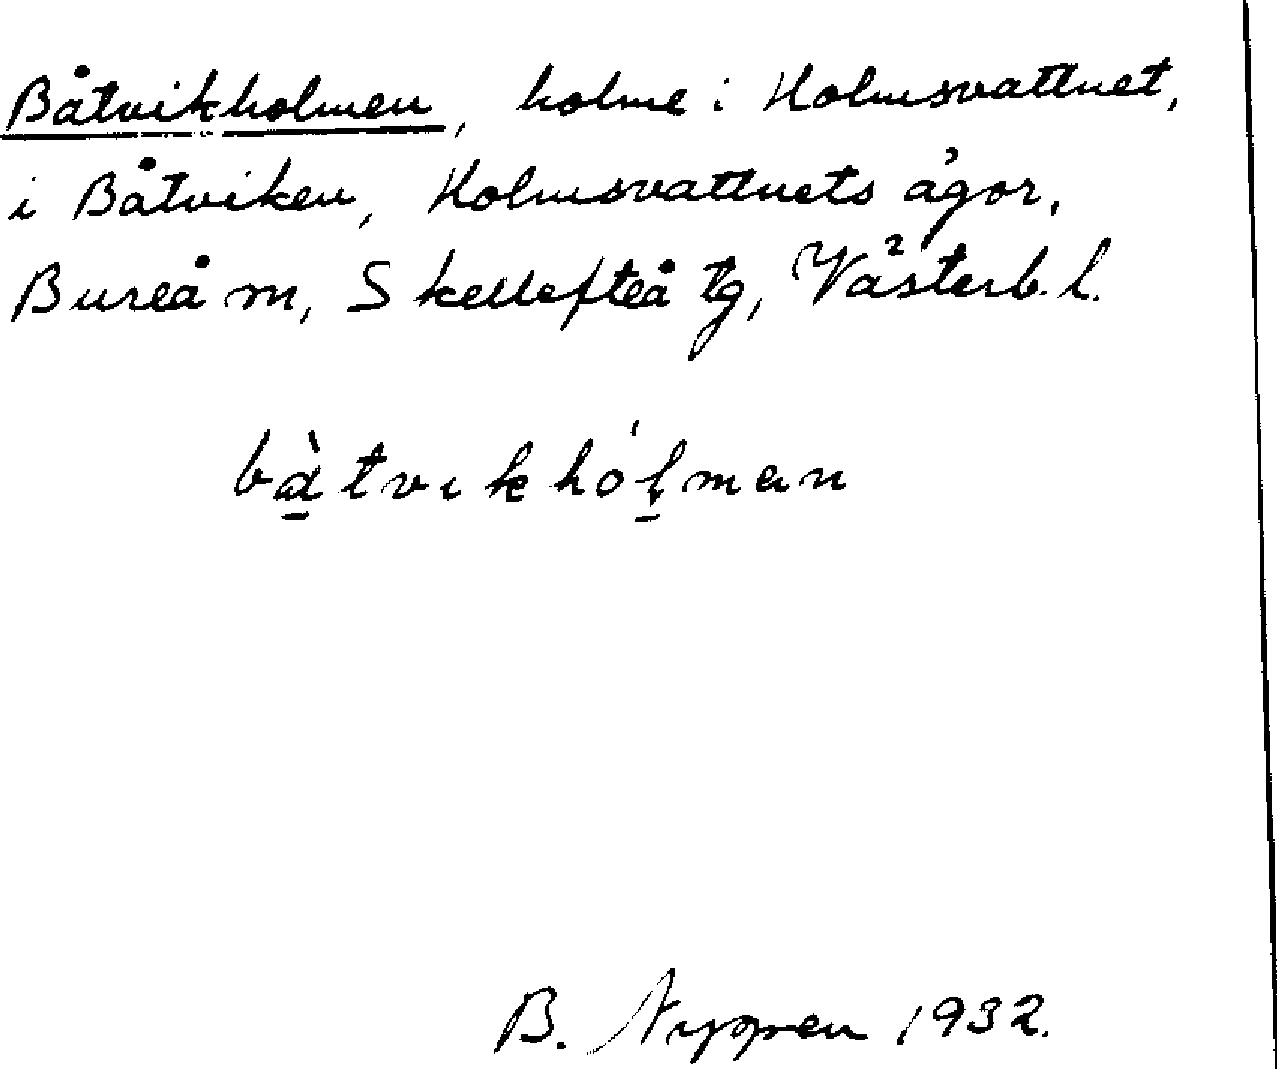 Båtvikholmen, holme i Holmsvattnet,
i Båtviken, Holmsvattnets ägor,
Bureå m, Skellefteå tg, Västerb. l.
bà̱tvıkhóḻmαn
B. Nygren 1932.